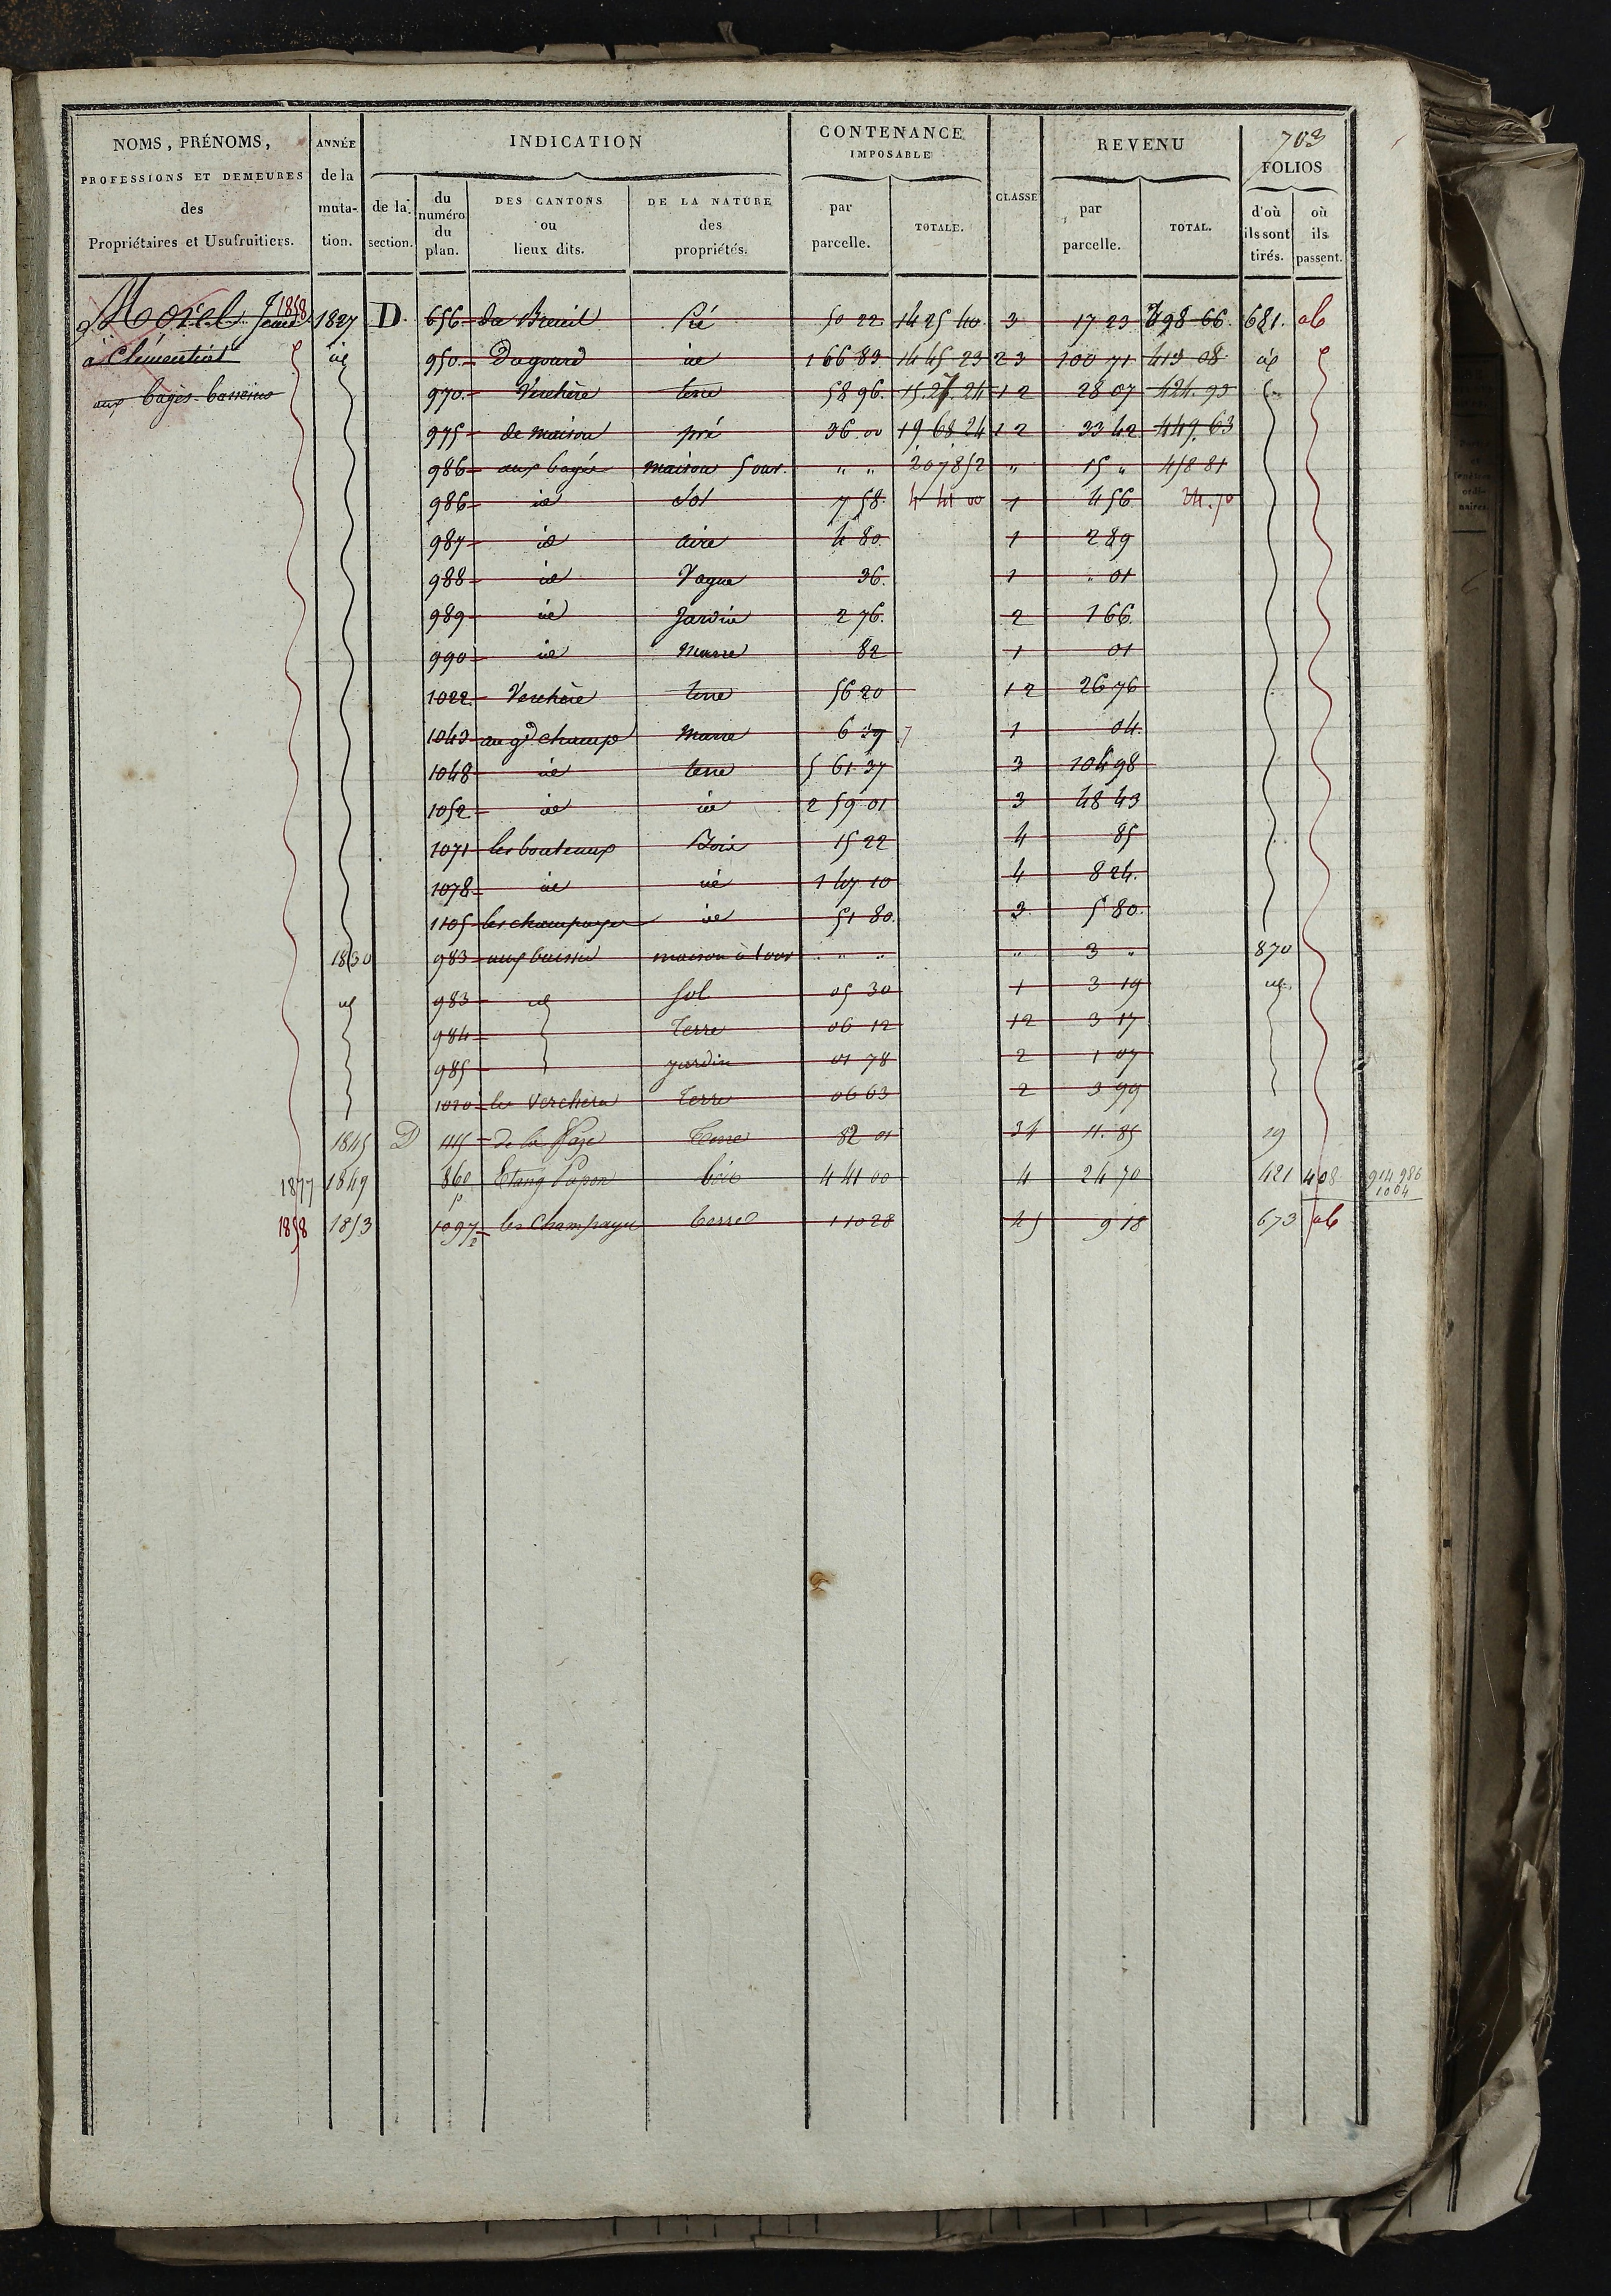 703
NOMS, PRÉNOMS, PROFESSIONS ET DEMEURES des Propriétaires et Usufruitiers.
ANNÉE de la muta- tion.
INDICATION
de la section.
du numéro du plan.
DES CANTONS ou lieux dits.
DE LA NATURE des propriétés.
CONTENANCE IMPOSABLE
par parcelle.
TOTALE.
CLASSE
REVENU
par parcelle.
TOTAL.
FOLIOS
d'où ils sont tirés.
où ils passent.
1858
Morel 1827 D. 656 du Breuil Pré 50 22 14 25 40 3 17 23 398 66 681. ab
à Clémentiat id 950 Dagouré id 1 66 83 14 45 23 2 3 100 71 413 08 id
aux bagés 970 Verchère terre 58 96 15 27 24 1 2 28 07 424 93
975 de maison pré 36 00 19 68 24 1 2 33 42 449 63
986 aux bagés maison 5 ouv. " " 20 78 52 " 15 " 458 81
986 id Sol 7 58 4 41 00 1 4 56 24.70
987 id aire 4 80 1 2 89
988 id Vague 36 1 " 01
989 id Jardin 2 76 2 1 66
990 id Marre 82 1 01
1022 Verchère terre 56 20 1 2 26 76
1043 au gd champ Marre 6 1 04
1048 id terre 5 61 37 3 104 98
1052 id id 2 59 01 3 48 43
1071 les bouteaux Bois 15 22 4 85
1078 id id 1 47 10 4 8 24
1105 les champayes id 51 80 3 5 80
1830 983 maison à 1 ouv " " " 3 " 870
id 983 id Sol 05 30 1 3 19 id
984 Terre 06 12 12 3 17
985 jardin 01 78 2 1 07
1020 les Verchère Terre 06 63 2 3 99
1845 D 1115 de la Terre 82 01 34 11.85 19
1877 1849 860 p Etang Papon bois 4 41 00 4 24 70 421 408 914 986 1004
1858 1853 1097 p les Champayes terre 1 10 28 45 9 18 673 ab